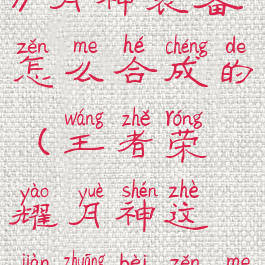 月神装备
zěn me hé chéng de
怎么合成的
wáng zhě róng
(王者荣
yào yuè shén zhè
耀月神这
jiàn zhuāng bèi zěn me